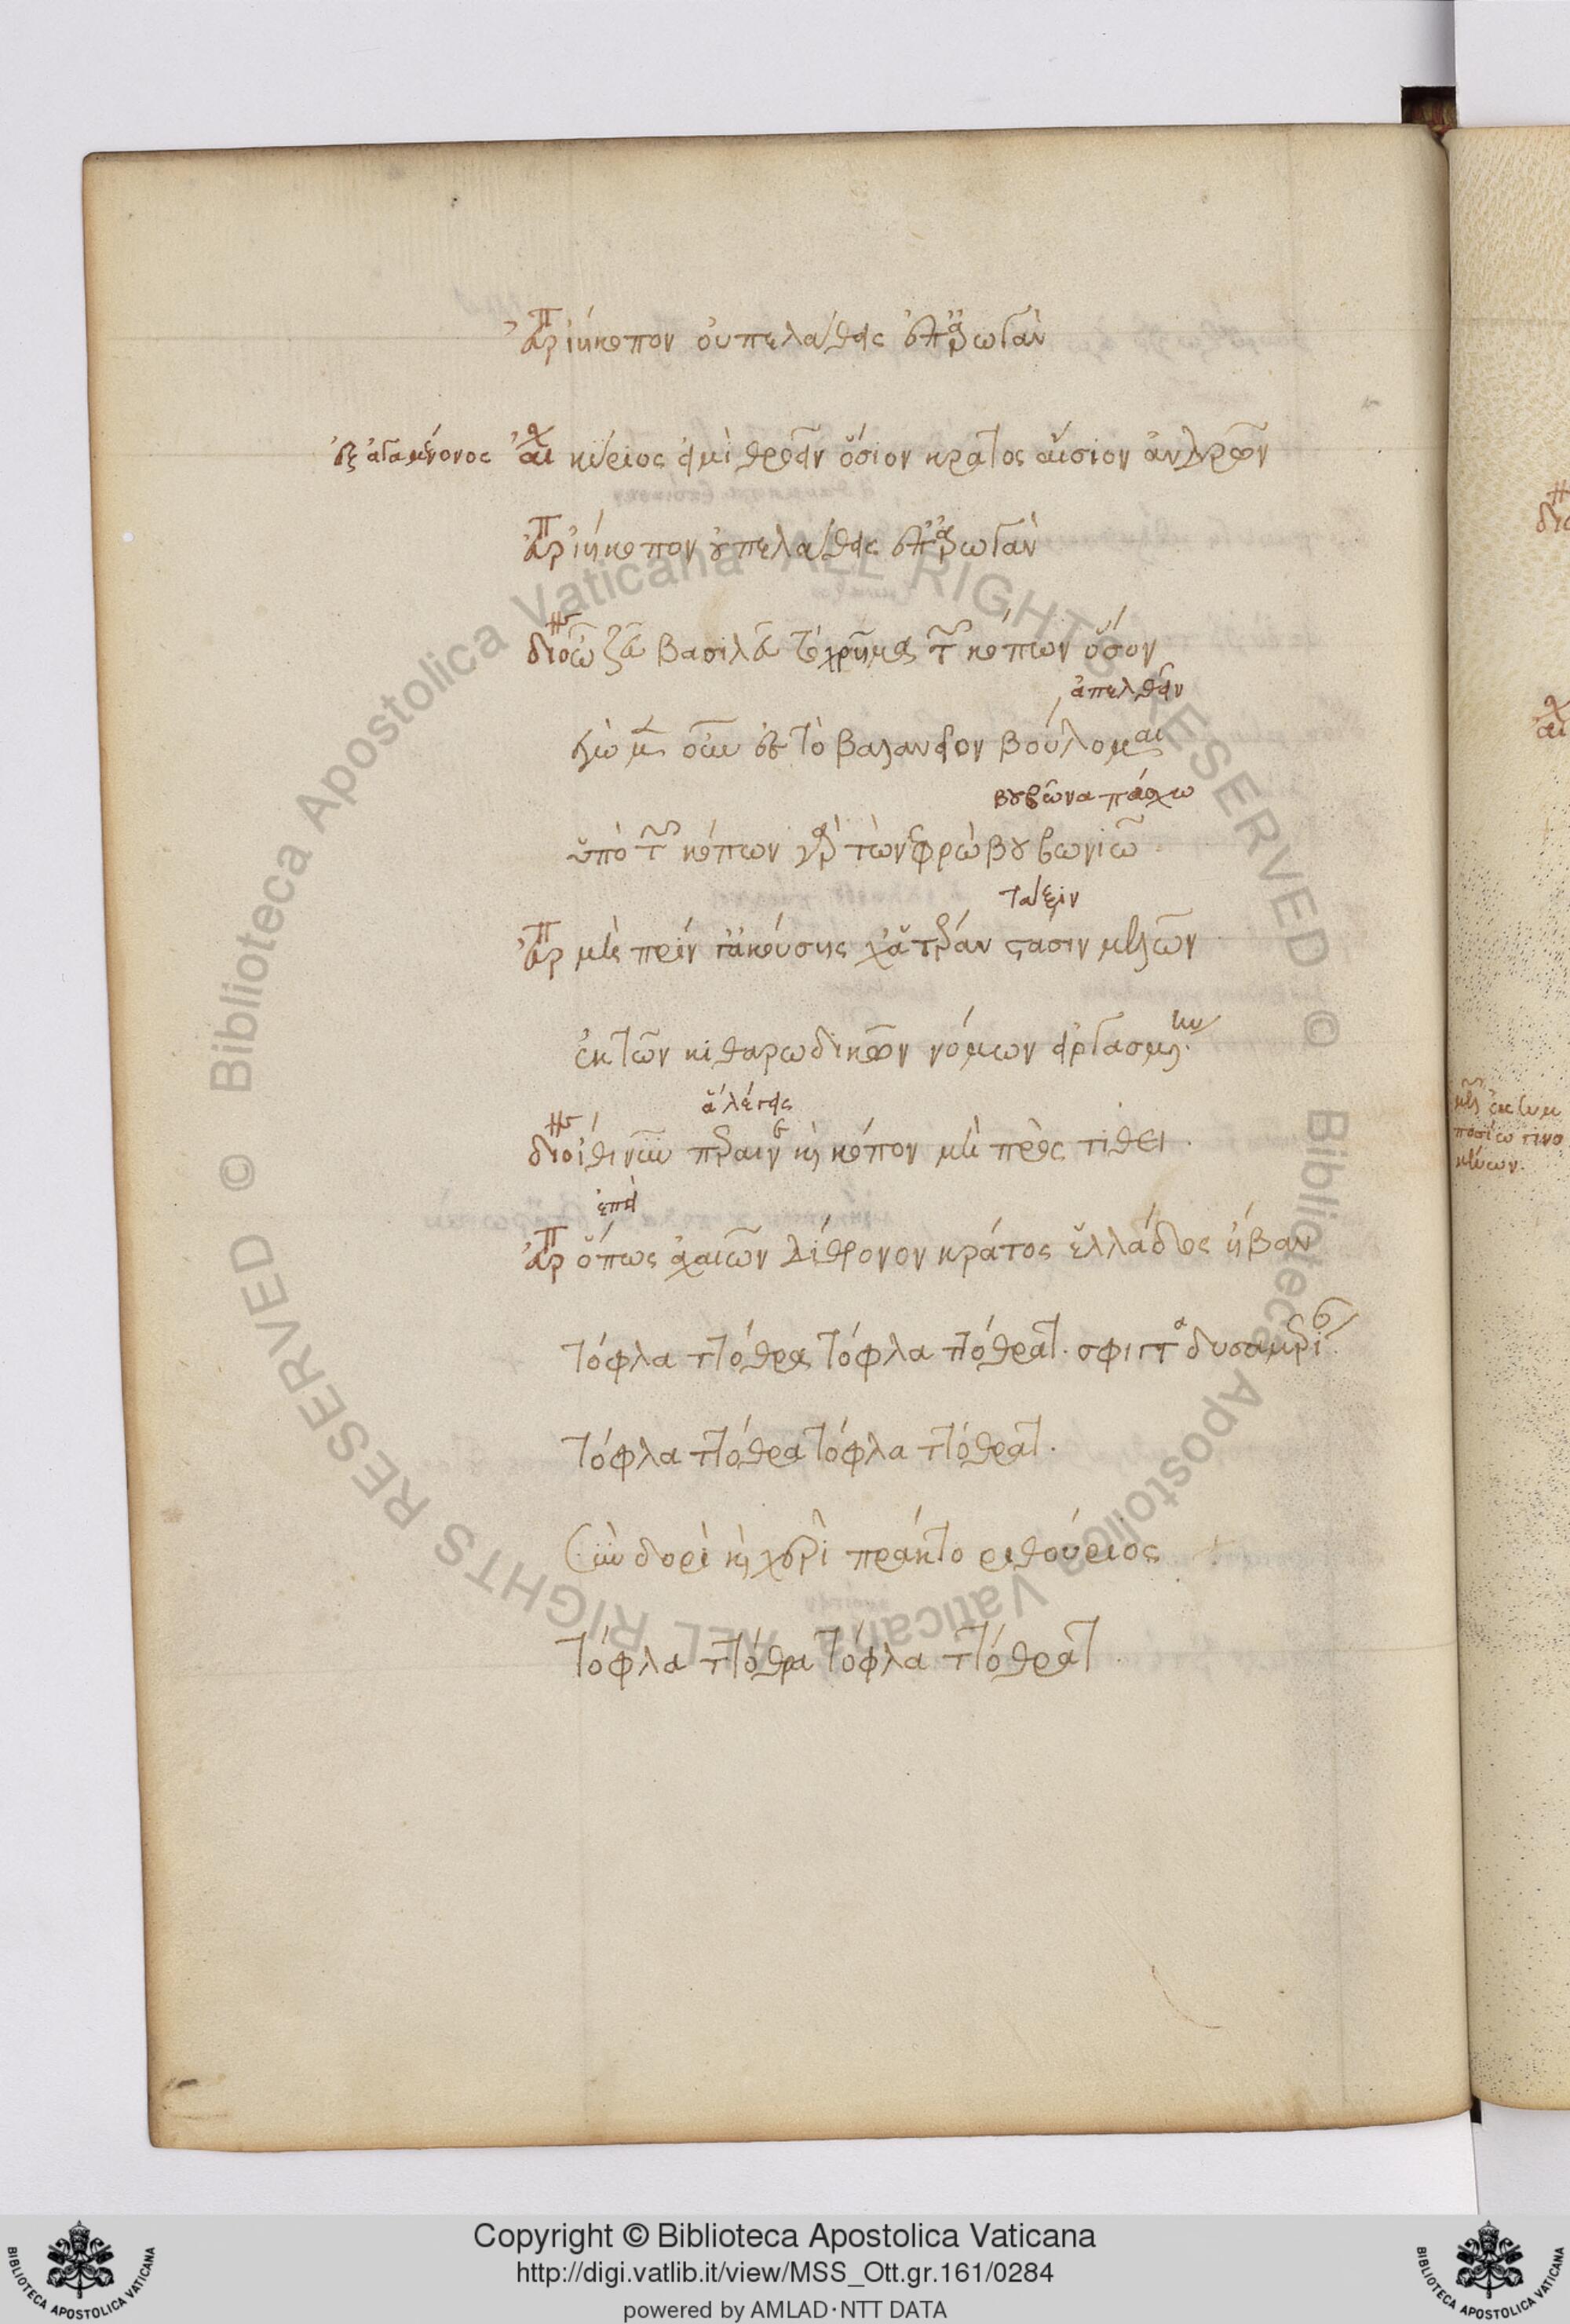 ἀριήκοπον οὐ πελάθεις ἐπ' ἀρωγάν
ἐξ ἀγαμέμνονος αι κύριός εἰμι θροεῖν ὅσιον κράτος αἴσιον ἀνδρῶν
ἀριήκοπον οὐ πελάθεις ἐπ' ἀρωγάν
διο ὦ ζεῦ βασιλεῦ τὸ χρῆμα τῶν κόπων ὅσον
ἀπελθεῖν
ἐγὼ μὲν οὖν ἐς τὸ βαλανεῖον βούλομαι
βουβῶνα πάσχω
ὑπὸ τῶν κόπων γὰρ τὼ νεφρὼ βουβωνιῶ
τάξιν
ευρ μὴ πρίν γ' ἀκούσῃς χἀτέραν στάσιν μελῶν
ἐκ τῶν κιθαρωδικῶν νόμων εἰργασμένην
ἃ λέγεις
διο ἴθι πέραινε καὶ κόπον μὴ προςτίθει
ἐπεὶ
ευρ ὅπως ἀχαιῶν δίθρονον κράτος ἑλλάδος ἥβαν
τόφλα ττόθρα τόφλα ττόθρατ. σφιγγα δυσαμερι
τόφλα ττόθρα τόφλα ττόθρατ.
ξὺν δορὶ καὶ χερὶ πράκτορι θούριος
τόφλα ττόθρα τόφλα ττόθρατ
Copyright © Biblioteca Apostolica Vaticana
http://digi.vatlib.it/view/MSS_Ott.gr.161/0284
powered by AMLAD·NTT DATA